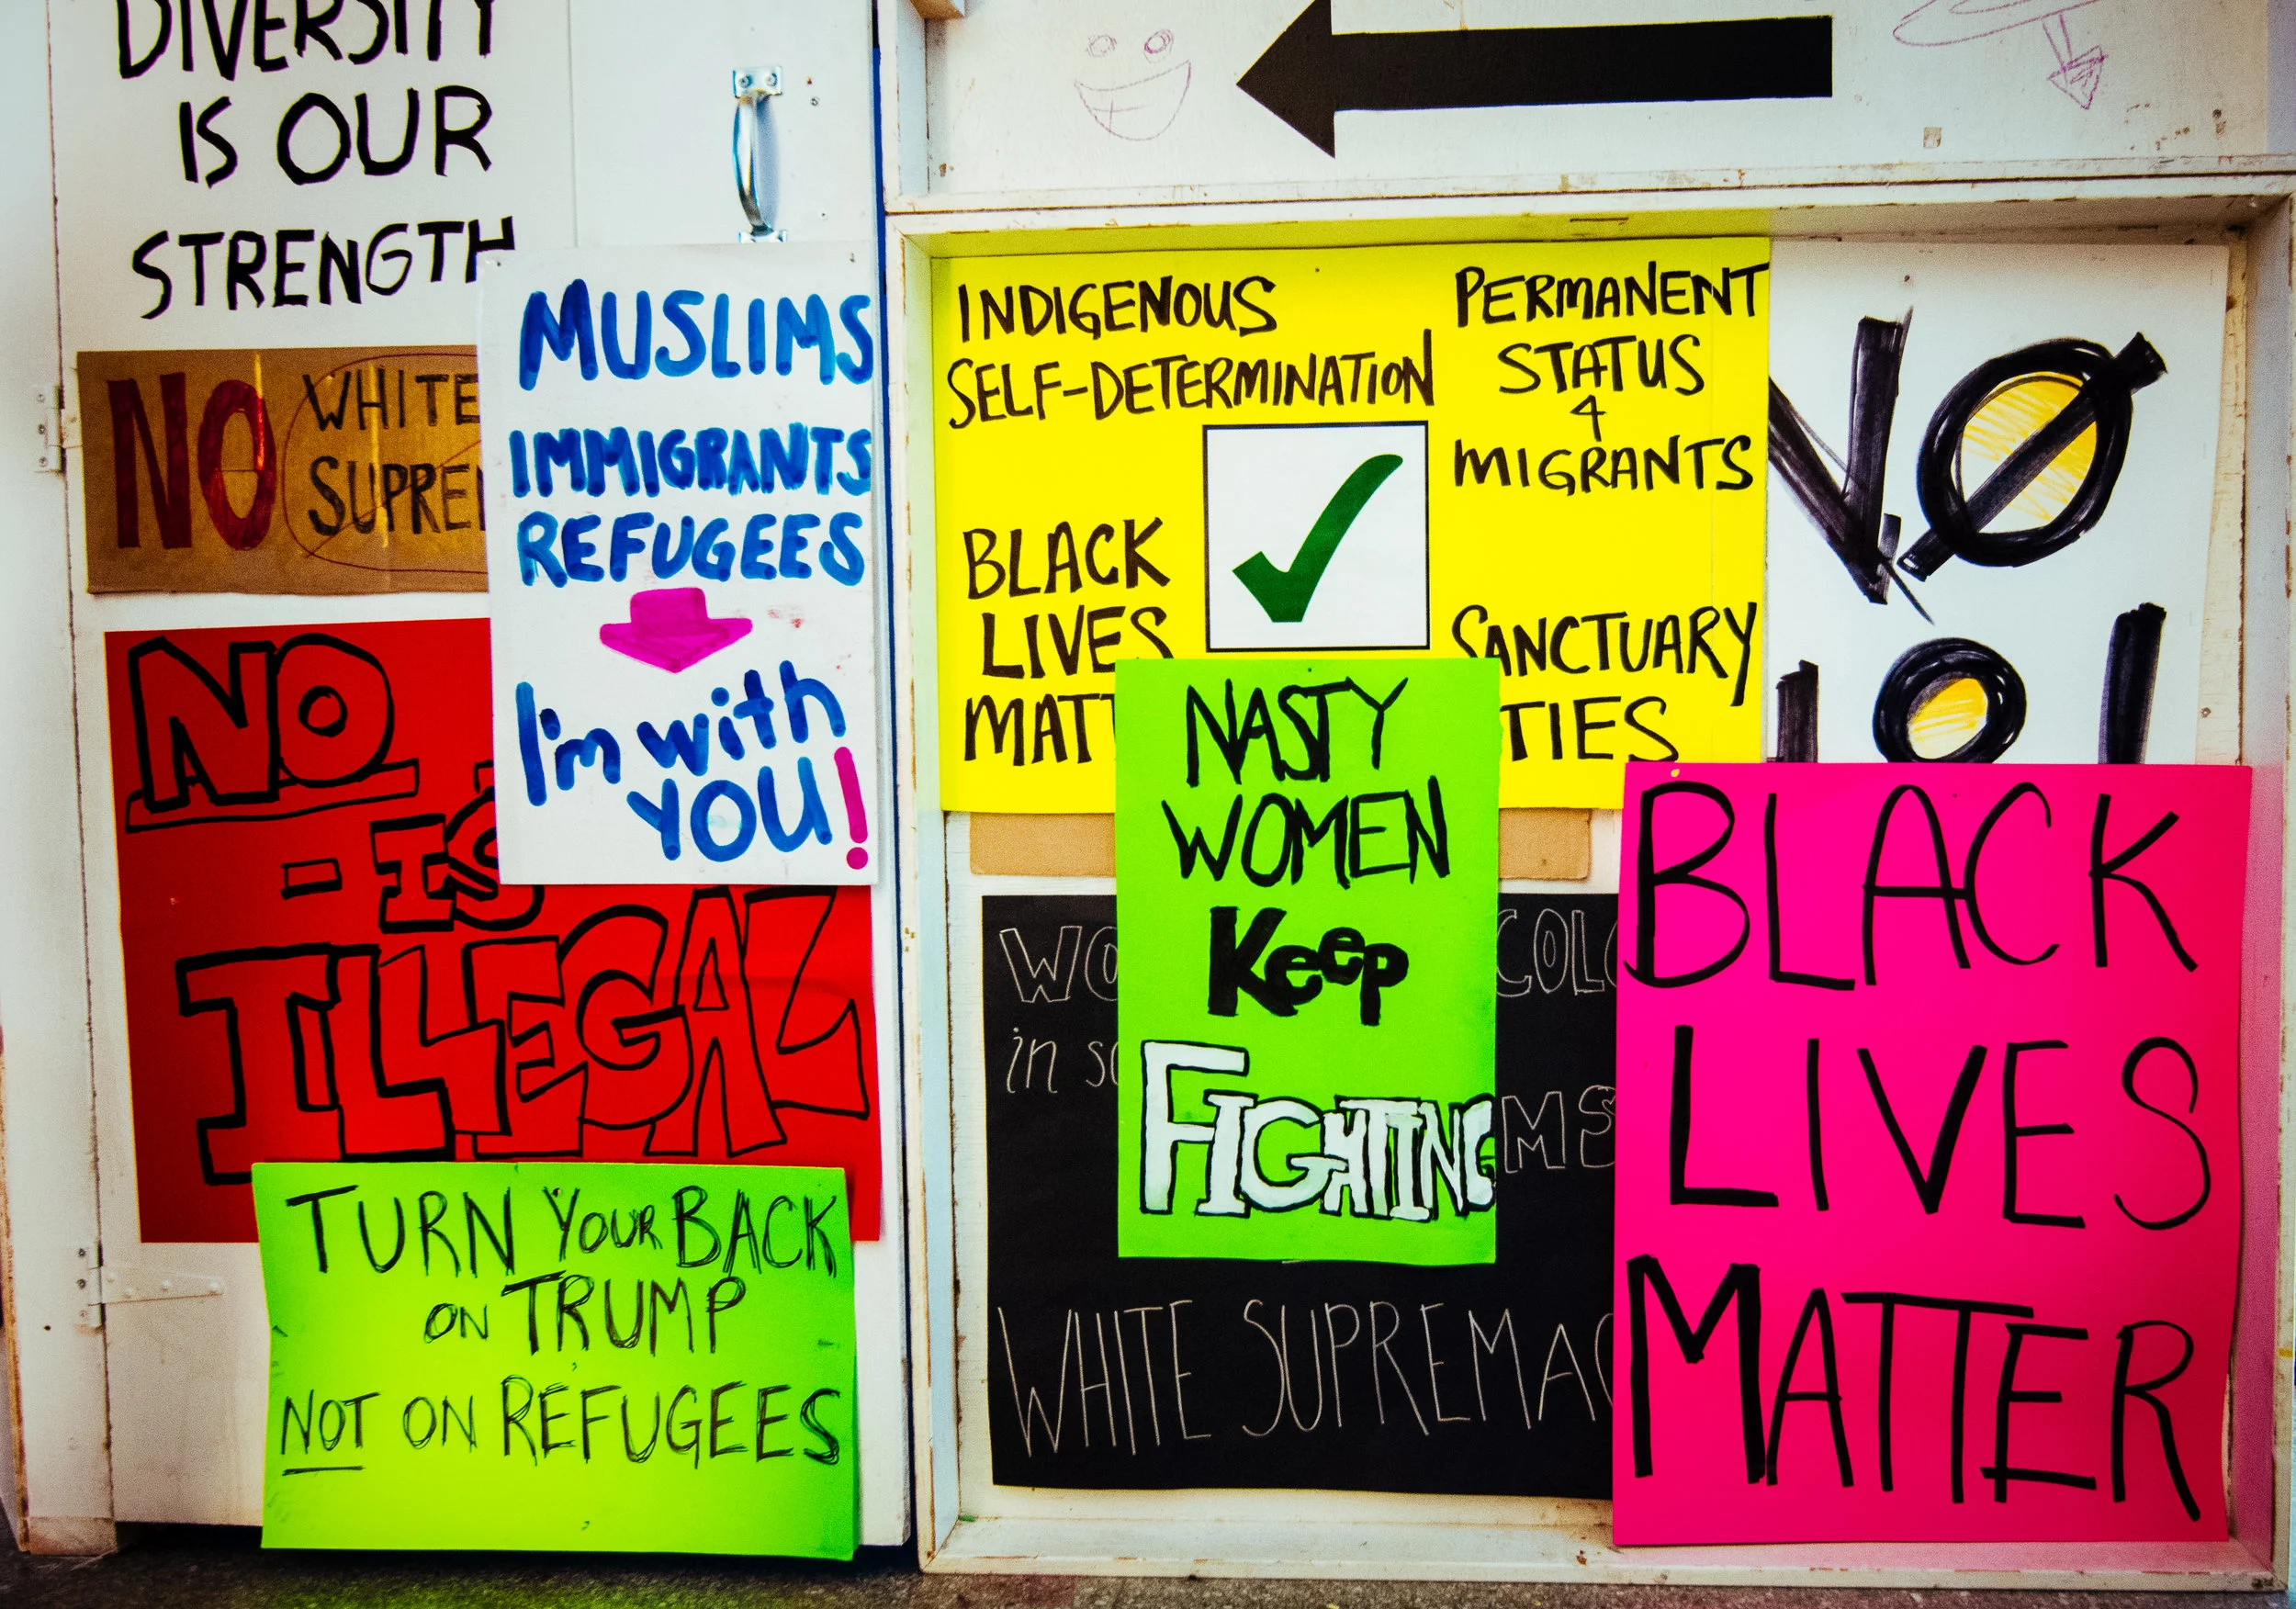 DIVERSITY
IS OUR
STRENGTH
NO WHITE
MUSLIMS
IMMIGRANTS
REFUGEES
I'm with
YOU!
NO
- IS
ILLEGAL
TURN YOUR BACK
ON TRUMP
NOT ON REFUGEES
INDIGENOUS
SELF-DETERMINATION
PERMANENT
STATUS
4
MIGRANTS
BLACK
LIVES
MATT
SANCTUARY
TIES
NO
NASTY
WOMEN
KEEP
FIGHTING
WO
COLO
in so
MS
WHITE SUPREMAC
BLACK
LIVES
MATTER